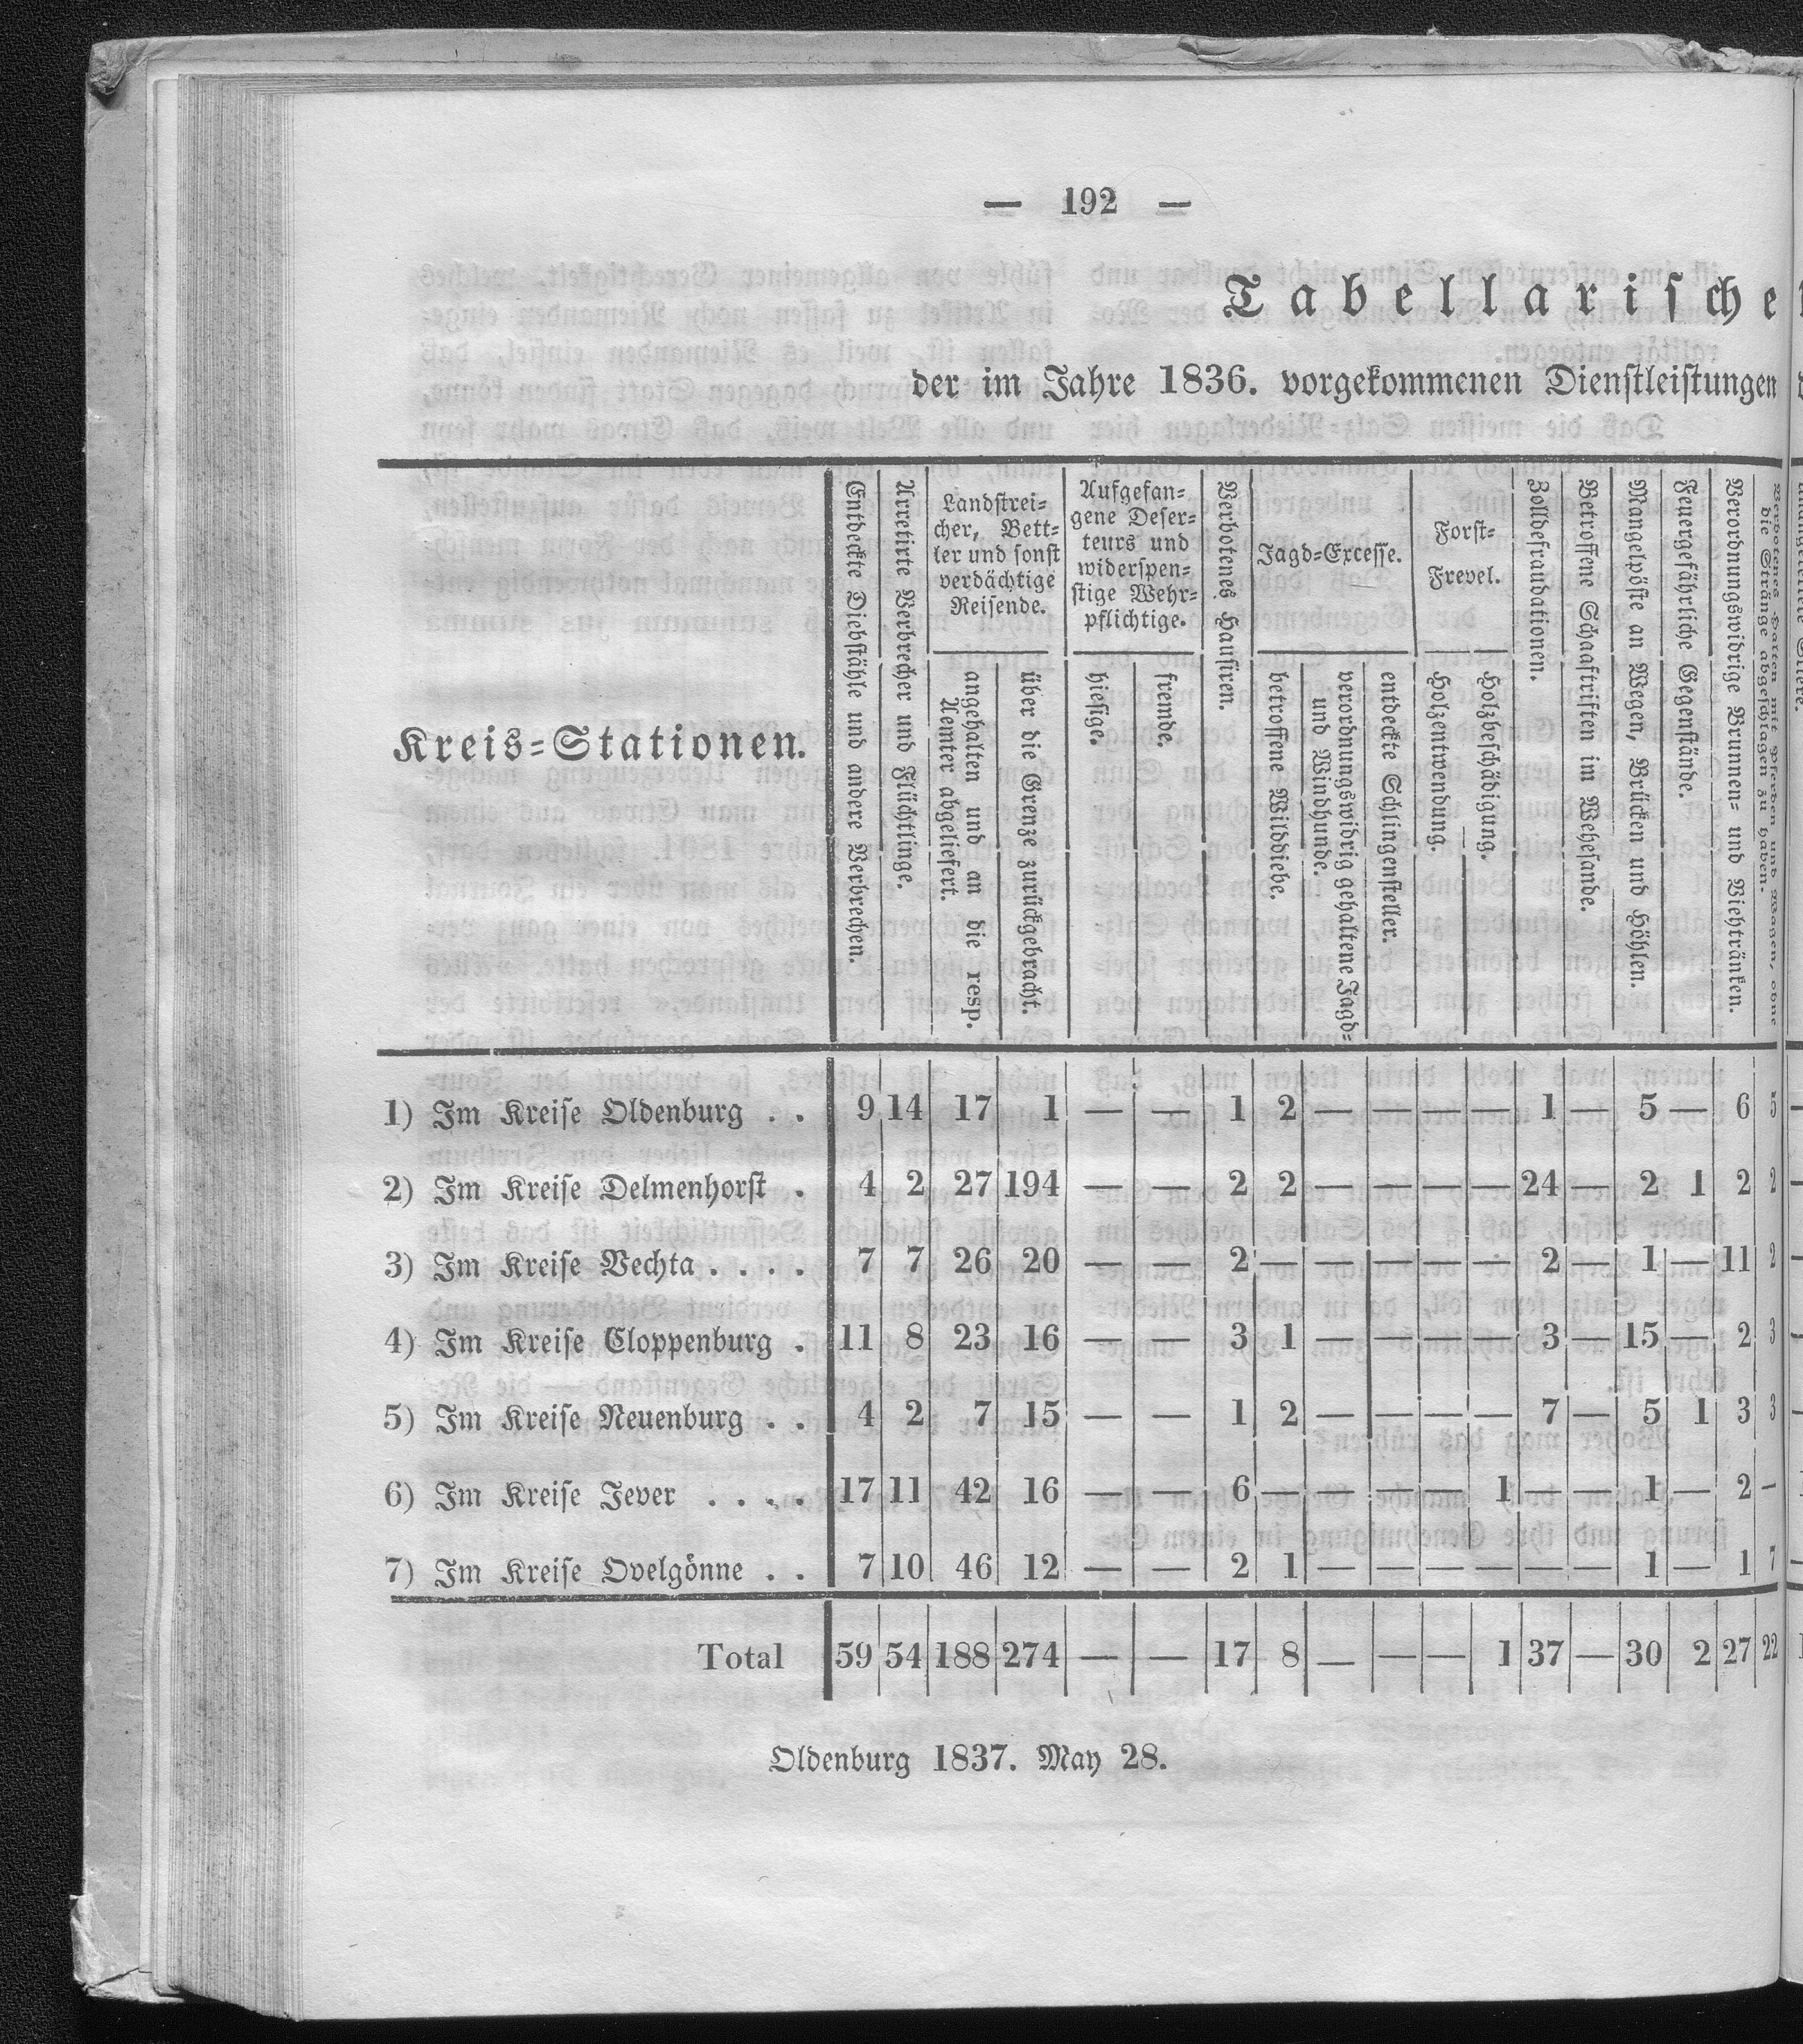 — 192 —
Tabellarische
der im Jahre 1836. vorgekommenen Dienstleistungen
Kreis=Stationen.
Entdeckte Diebstähle und andere Verbrechen.
Arretirte Verbrecher und Flüchtlinge.
Landstrei=
cher, Bett=
ler und sonst
verdächtige
Reisende.
angehalten und an die resp.
Aemter abgeliefert.
über die Grenze zurückgebracht.
Aufgefan=
gene Deser=
teurs und
widerspen=
stige Wehr=
pflichtige.
hiesige.
fremde.
Verbotenes Hausiren.
Jagd=Excesse.
betroffene Wilddiebe.
verordnungswidrig gehaltene Jagd=
und Windhunde.
entdeckte Schlingensteller.
Forst=
Frevel.
Holzentwendung.
Holzbeschädigung.
Zolldefraudationen.
Betroffene Schaaftriften im Wehesande.
Mangelpöste an Wegen, Brücken und Höhlen.
Feuergefährliche Gegenstände.
Verordnungswidrige Brunnen= und Viehtränken.
Verbotenes Halten mit Pferden und Wagen, ohne
die Stränge abgeschlagen zu haben.
1) Im Kreise Oldenburg . . 9 14 17 1 — — 1 2 — — — — 1 — 5 — 6 5
2) Im Kreise Delmenhorst . 4 2 27 194 — — 2 2 — — — — 24 — 2 1 2 2
3) Im Kreise Vechta . . . . 7 7 26 20 — — 2 — — — — — 2 — 1 — 11 2
4) Im Kreise Cloppenburg . 11 8 23 16 — — 3 1 — — — — 3 — 15 — 2 3
5) Im Kreise Neuenburg . . 4 2 7 15 — — 1 2 — — — — 7 — 5 1 3 3
6) Im Kreise Jever . . . . 17 11 42 16 — — 6 — — — — 1 — — 1 — 2 —
7) Im Kreise Ovelgönne . . 7 10 46 12 — — 2 1 — — — — — — 1 — 1 7
Total 59 54 188 274 — — 17 8 — — — 1 37 — 30 2 27 22
Oldenburg 1837. May 28.